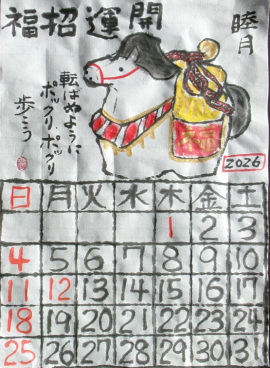 開運招福
睦月
転ばぬように
ポックリ、ポックリ
歩こう
2026
日 月 火 水 木 金 土
1 2 3
4 5 6 7 8 9 10
11 12 13 14 15 16 17
18 19 20 21 22 23 24
25 26 27 28 29 30 31